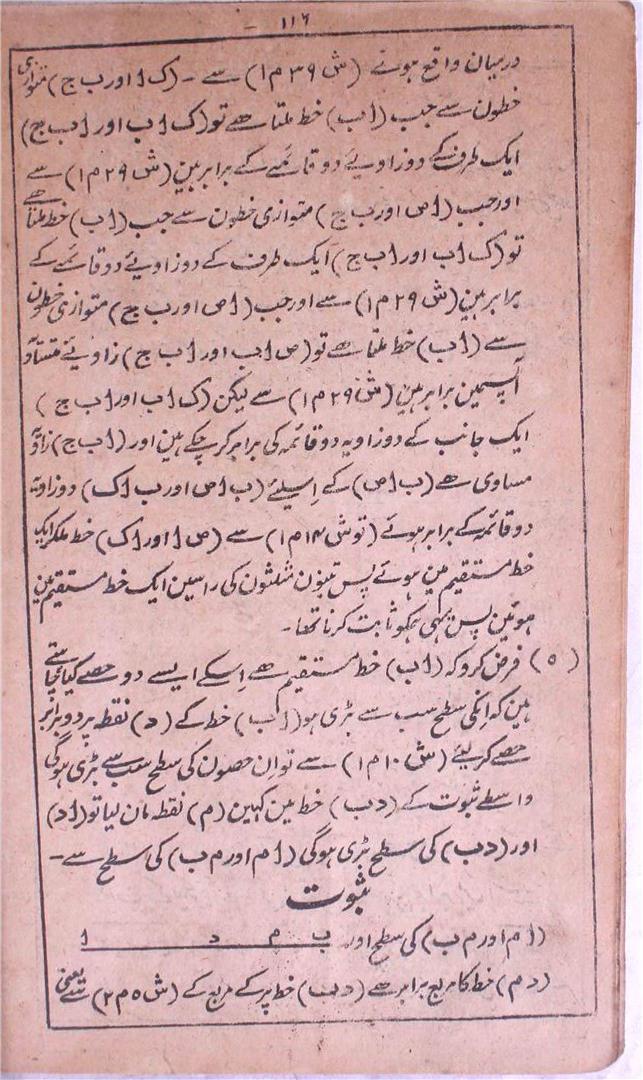 ۱۱۶
درمیان واقع ہوئے (ش ۳۹ م ۱) سے - (ک ا اور ب ج) متوازی
خطون سے جب (اب) خط ملتا ہے تو (ک اب اور اب ج)
ایک طرف کے دوزاویے دو قائمے کے برابر ہین (ش ۲۹ م ۱) سے
اور جب (اص اور ب ج) متوازی خطون سے جب (اب) خط ملتا ہے
تو (ک اب اور اب ج) ایک طرف کے دوزاویے دو قائمے کے
برابر ہین (ش ۲۹ م ۱) سے اور جب (اص اور ب ج) متوازی خطون
سے (اب) خط ملتا ہے تو (ص اب اور اب ج) زاویے
آپسمین برابر ہین (ش ۲۹ م ۱) سے لیکن (ک اب اور اب ج)
ایک جانب کے دوزاویہ دو قائمہ کی برابر کر چکے ہین اور (اب ج) زاویہ
مساوی ہے (ب اص) کے اسلیے (ب اص اور ب اک) دوزاویہ
دو قائمہ کے برابر ہوئے (تو ش ۱۴ م ۱) سے (ص ا اور اک) خط ملکر ایک
خط مستقیم مین ہوئے پس تینون مثلثون کی راسین ایک خط مستقیم مین
ہوئین پس یہی ہمکو ثابت کرنا تھا۔
(۵) فرض کرو کہ (اب) خط مستقیم ہے اِسکے ایسے دو حصے کیا چاہتے
ہین کہ انکی سطح سب سے بڑی ہو (اب) خط کے (د) نقطہ پر دو برابر
حصے کر لیے (ش ۱۰ م ۱) سے تو اِن حصون کی سطح سب سے بڑی ہوگی
واسطے ثبوت کے (دب) خط مین کہین (م) نقطہ مان لیا تو (اد)
اور (دب) کی سطح بڑی ہوگی (ام اور م ب) کی سطح سے -
ثبوت
(ام اور م ب) کی سطح اور ب م د ا
(دم) خط کا مربع برابر ہے (دب) خط پر کے مربع کے (ش ۵ م ۲) سے یعنی